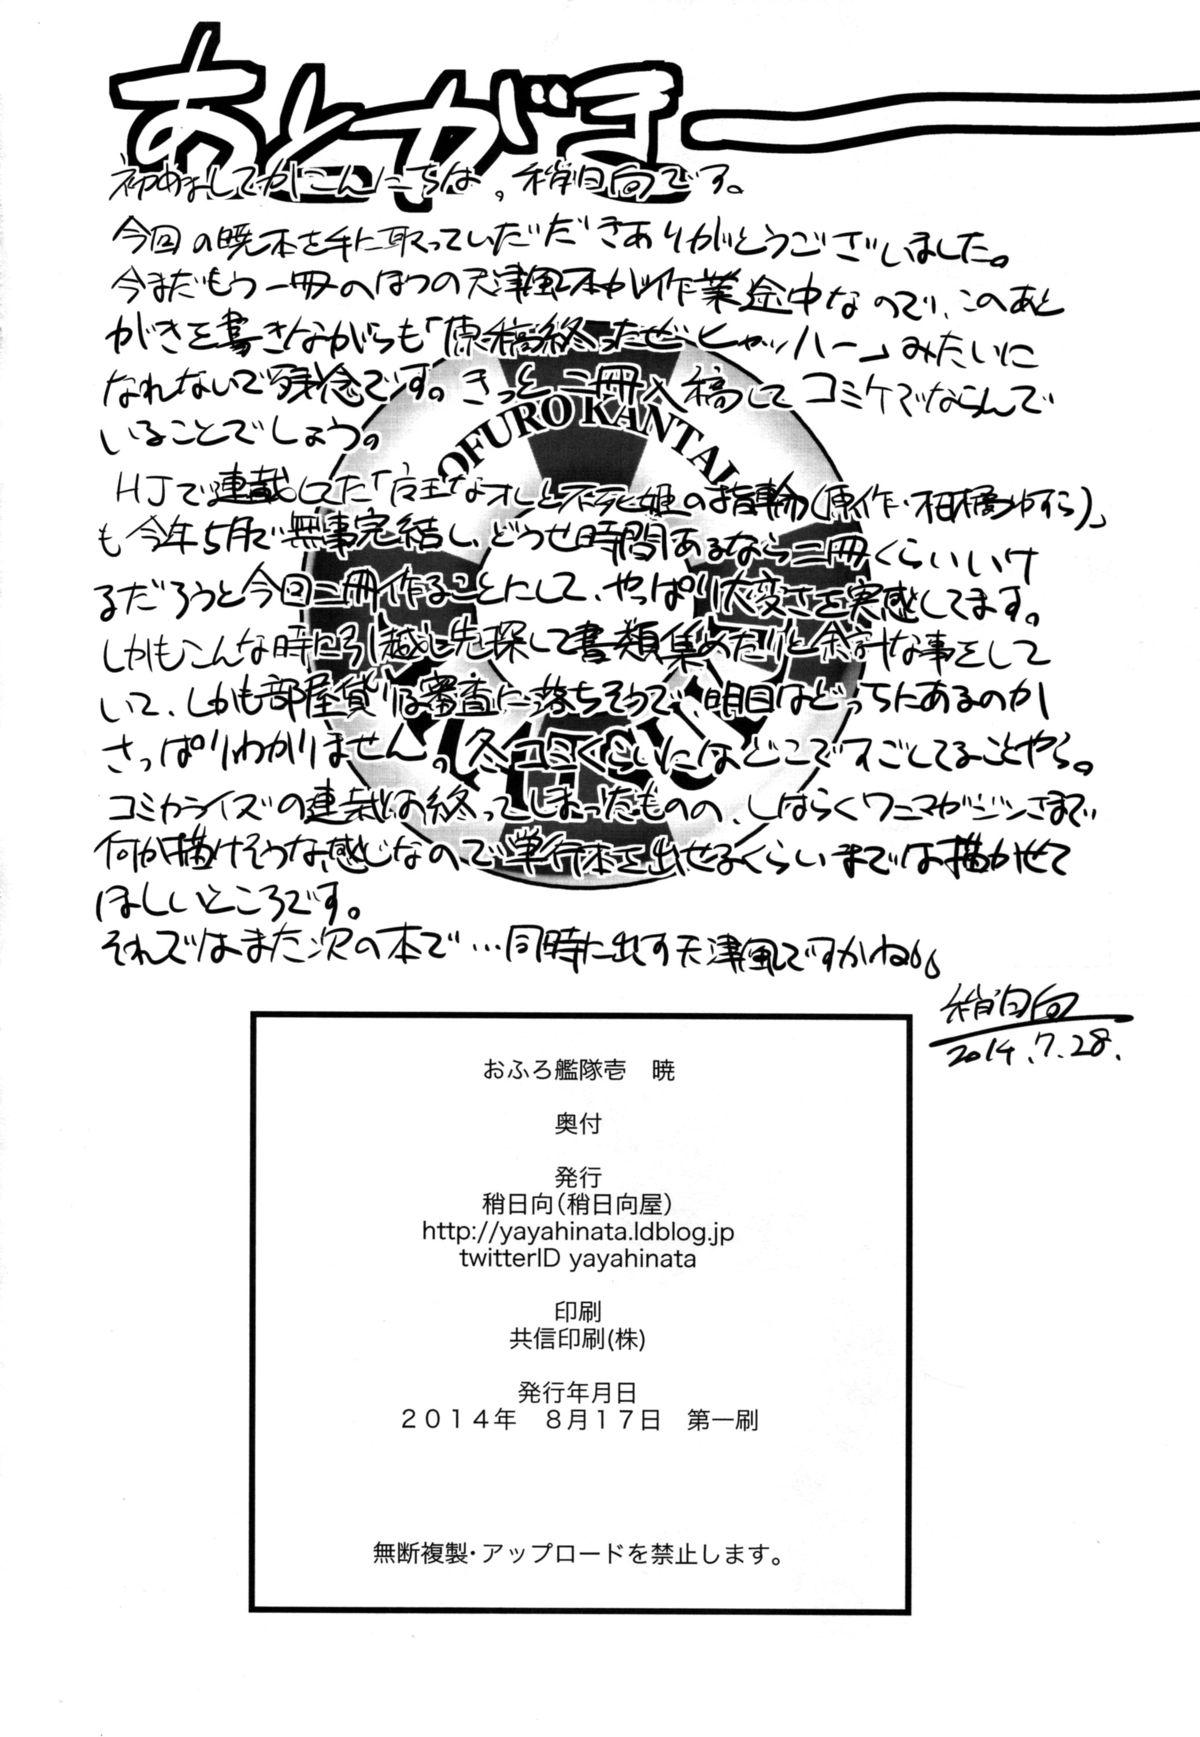 あとがきー
初めましてかこんにちは、稍日向です。
今回の暁本を手に取っていただだきありがとうございました。
今まだもう一冊のほうの天津風本が作業途中なので、このあと
がきを書きながらも「原稿終ったぜーヒャッハー」みたいに
なれないで残念です。きっと二冊入稿してコミケでならんで
いることでしょう。
OFURO KANTAI
HJで連載してた「魔王なオレと不死姫の指輪(原作・柑橘ゆすら)」
も今年5月で無事完結し、どうせ時間あるなら二冊くらいいけ
るだろうと今回二冊作ることにして、やっぱり大変さを実感してます。
しかもこんな時に引越し先探して書類集めたりと余計な事をして
いて、しかも部屋貸りは審査に落ちそうで、明日はどっちにあるのか
さっぱりわかりません。冬コミくらいにはどこですごしてることやら。
コミカライズの連載は終ってしまったものの、しばらくワニマガジンさまで
何か描けそうな感じなので単行本で出せるくらいまでは描かせて
ほしいところです。
それではまた次の本で…同時に出す天津風ですかね。
稍日向
2014.7.28.
おふろ艦隊壱　暁
奥付
発行
稍日向(稍日向屋)
http://yayahinata.ldblog.jp
twitterID yayahinata
印刷
共信印刷(株)
発行年月日
２０１４年　８月１７日　第一刷
無断複製・アップロードを禁止します。